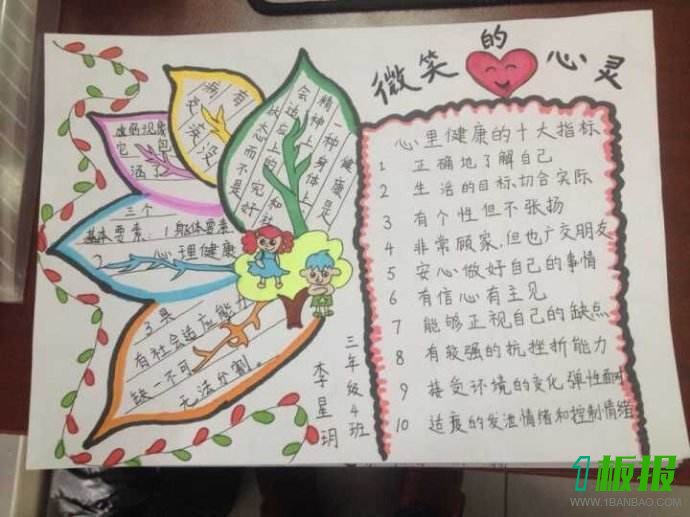 微笑的心灵
健康是
一种身体上
精神上和社
会适应上的完好
状态而不是
有没
虚弱现象
它包
涵了
三个
基本要素:1身体要素
2 心理健康
3具
有社会适应能力
缺一不可
无法分割。
三年级4班
李星玥
心里健康的十大指标
1 正确地了解自己
2 生活的目标,切合实际
3 有个性但不张扬
4 非常顾家,但也广交朋友
5 安心做好自己的事情
6 有信心有主见
7 能够正视自己的缺点
8 有较强的抗挫折能力
9 接受环境的变化弹性
10 适度的发泄情绪和控制情绪
1板报
WWW.1BANBAO.COM